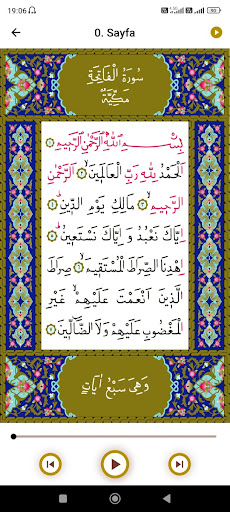 19:06
0. Sayfa
سُورَةُ الْفَاتِحَةِ
مَكِّيَّةٌ
بِسْمِ اللهِ الرَّحْمٰنِ الرَّحِيمِ
اَلْحَمْدُ لِلّٰهِ رَبِّ الْعَالَمِينَۙ ﴿١﴾ اَلرَّحْمٰنِ
الرَّحِيمِۙ ﴿٢﴾ مَالِكِ يَوْمِ الدِّينِۜ ﴿٣﴾
اِيَّاكَ نَعْبُدُ وَ اِيَّاكَ نَسْتَعِينُۜ ﴿٤﴾
اِهْدِنَا الصِّرَاطَ الْمُسْتَقِيمَۙ ﴿٥﴾ صِرَاطَ
الَّذِينَ اَنْعَمْتَ عَلَيْهِمْۙ غَيْرِ
الْمَغْضُوبِ عَلَيْهِمْ وَلَا الضَّالِّينَ ﴿٦﴾
وَهِيَ سَبْعُ اٰيَاتٍ